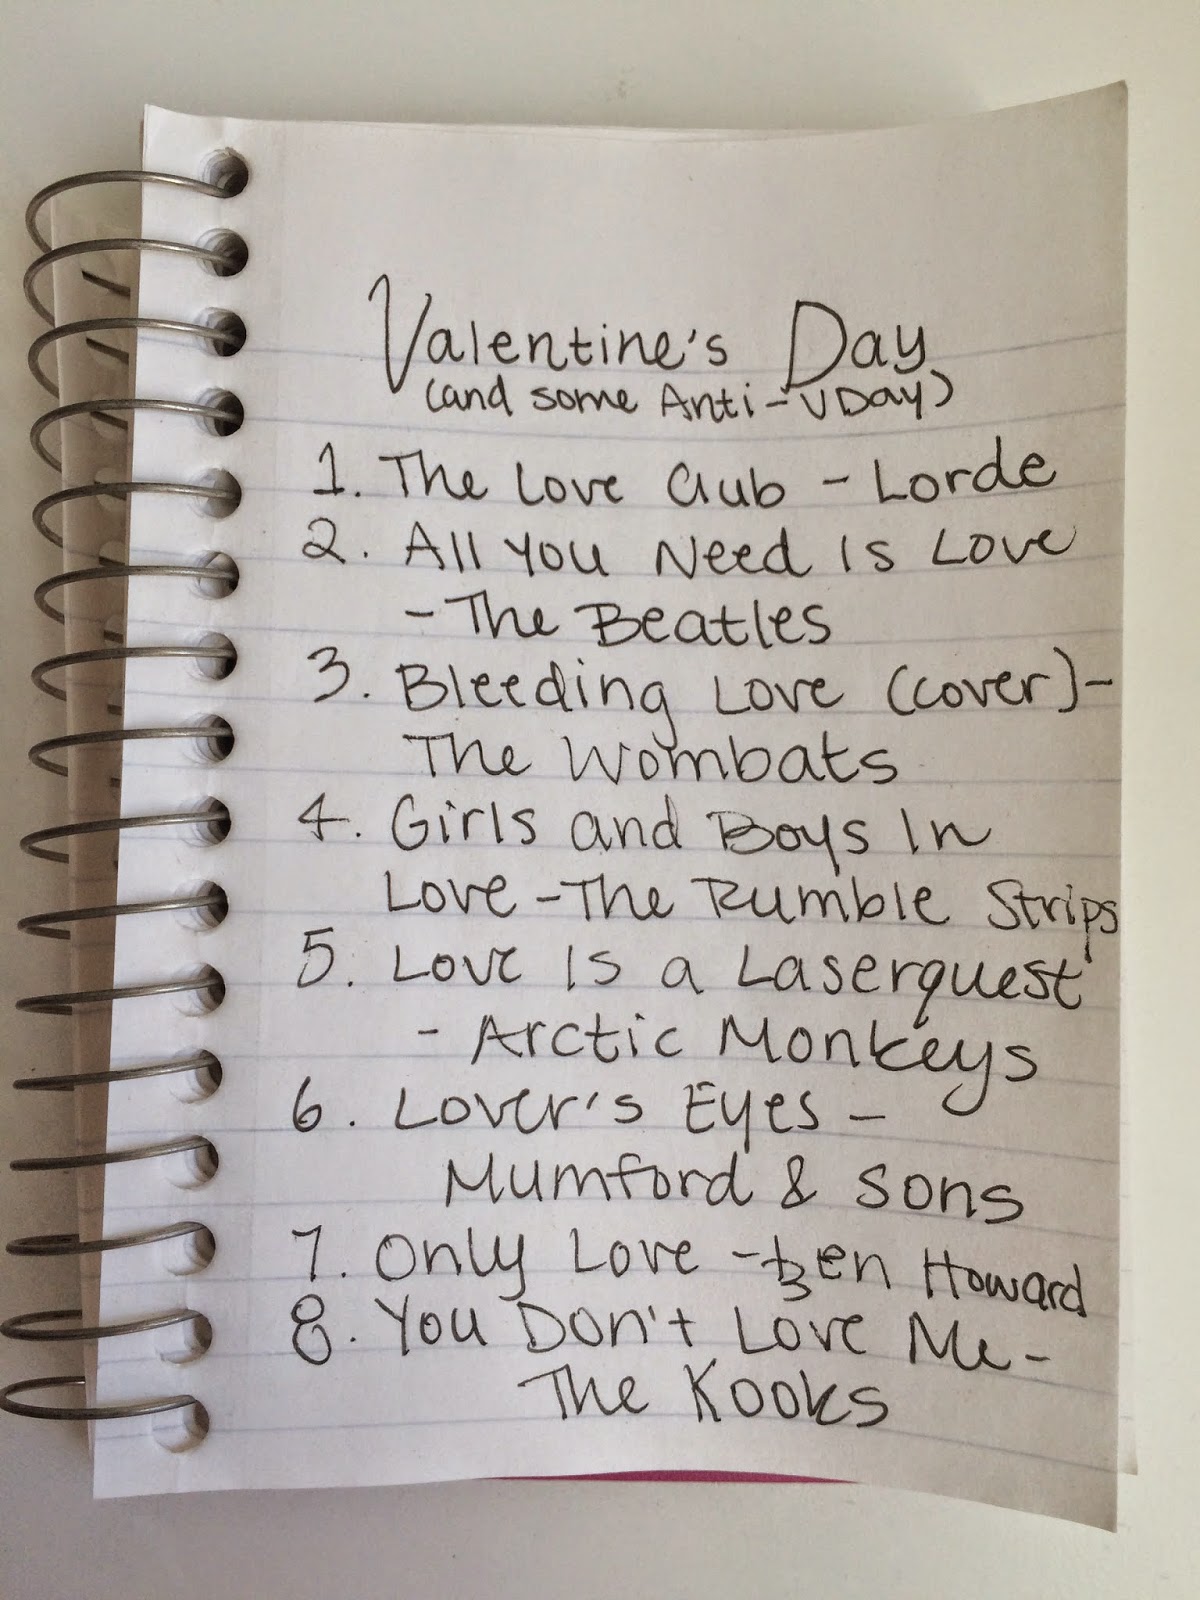 Valentine's Day
(and some Anti-VDay)
1. The Love Club - Lorde
2. All You Need Is Love
- The Beatles
3. Bleeding Love (cover) -
The Wombats
4. Girls and Boys In
Love - The Rumble Strips
5. Love Is a Laserquest
- Arctic Monkeys
6. Lover's Eyes -
Mumford & Sons
7. Only Love - Ben Howard
8. You Don't Love Me -
The Kooks